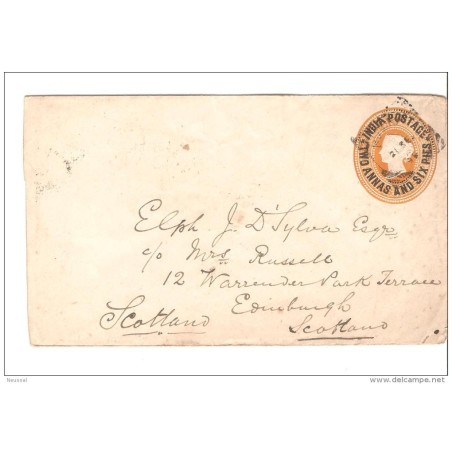 INDIA POSTAGE
TWO ANNAS AND SIX PIES
Elph J. D'Sylva Esqre
c/o Mrs Russell
12 Warrender Park Terrace
Edinburgh
Scotland
Scotland
Neussal
delcampe.net